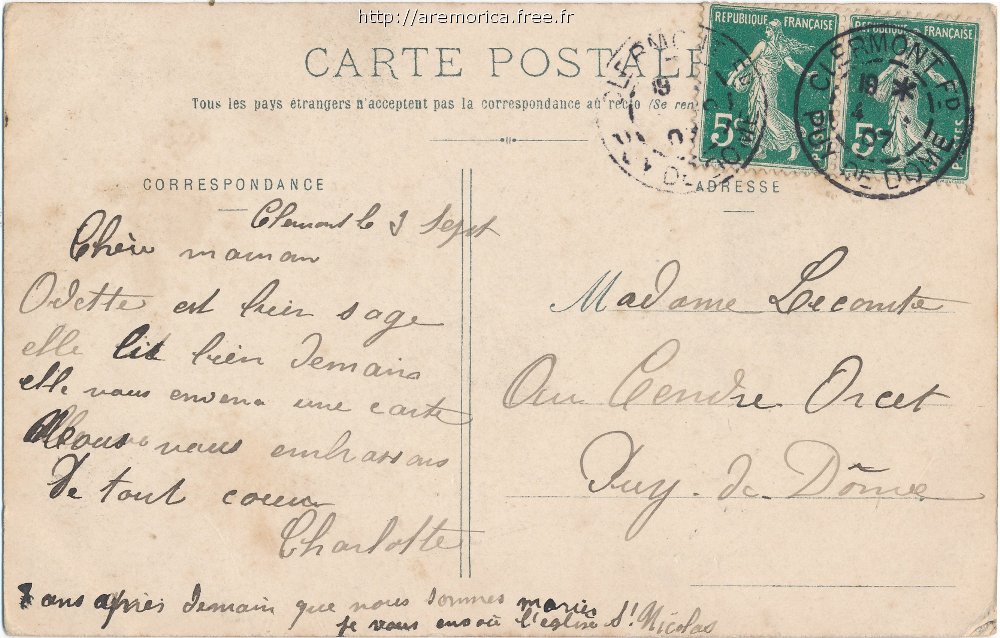 http://aremorica.free.fr
CARTE POSTALE
Tous les pays étrangers n'acceptent pas la correspondance au recto (Se ren
RÉPUBLIQUE FRANÇAISE
5c
RÉPUBLIQUE FRANÇAISE
5c
CLERMONT FD
PUY DE DOME
CLERMONT FD
19 *
4
07
PUY DE DOME
CORRESPONDANCE
ADRESSE
Clermont le 3 Sept
Chère maman
Odette est bien sage
elle lit bien demain
elle vous enverra une carte
Nous vous embrassons
De tout coeur
Charlotte
Madame Lecomte
Au Cendre Orcet
Puy-de-Dôme
ans après demain que nous sommes mariés
je vous envoi l'église St Nicolas